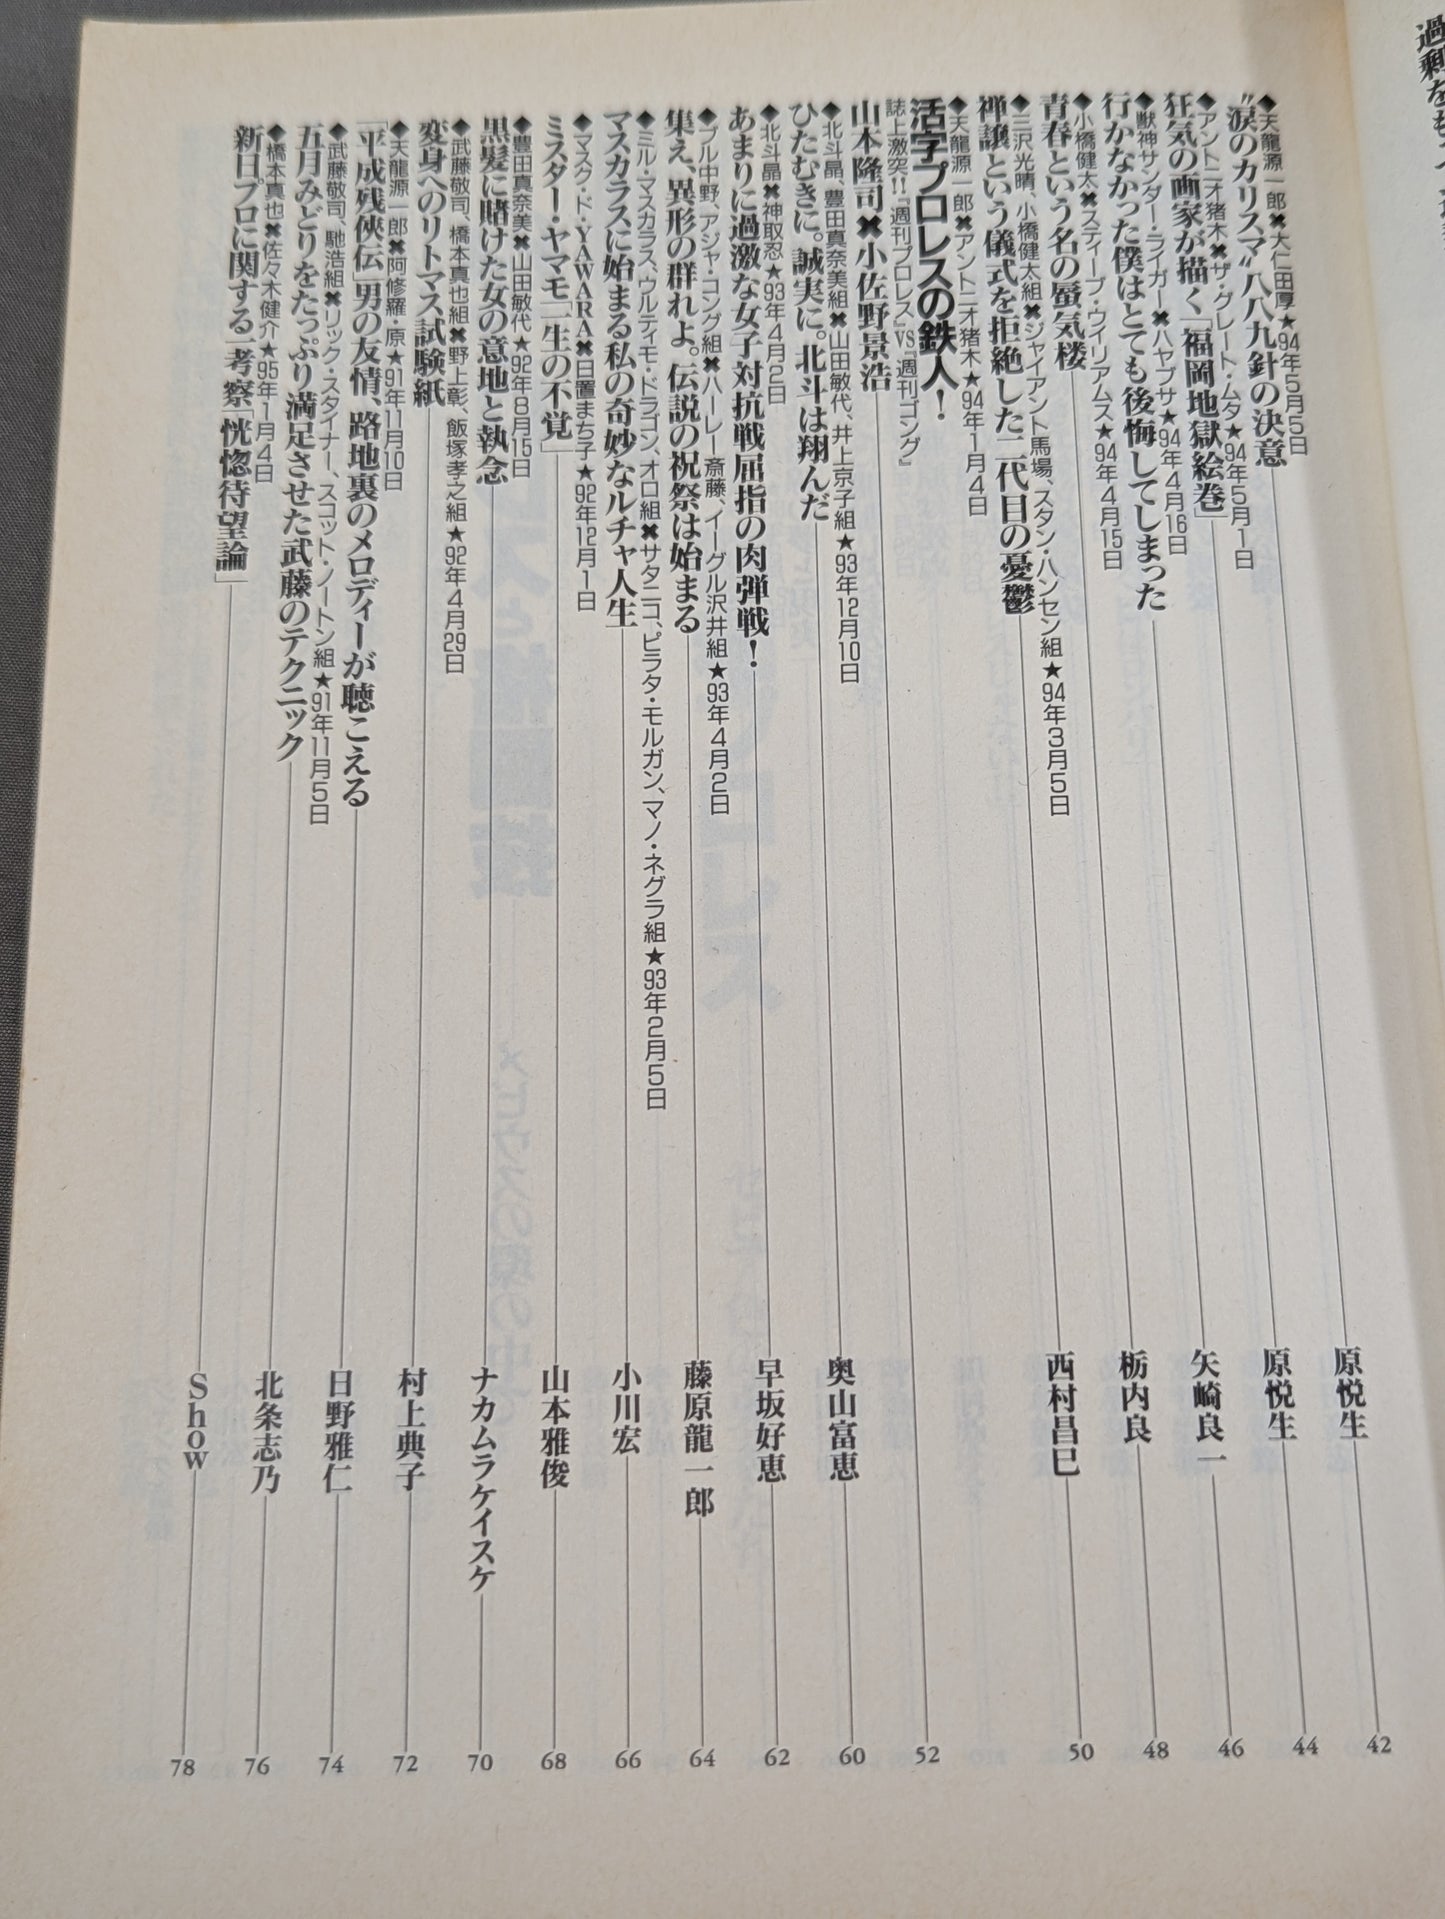 ◆天龍源一郎✖大仁田厚★94年5月5日
“涙のカリスマ”八八九針の決意 原悦生 42
◆アントニオ猪木✖ザ・グレート・ムタ★94年5月1日
狂気の画家が描く「福岡地獄絵巻」 原悦生 44
◆獣神サンダー・ライガー✖ハヤブサ★94年4月16日
行かなかった僕はとても後悔してしまった 矢崎良一 46
◆小橋健太✖スティーブ・ウイリアムス★94年4月15日
青春という名の蜃気楼 栃内良 48
◆三沢光晴、小橋健太組✖ジャイアント馬場、スタン・ハンセン組★94年3月5日
禅譲という儀式を拒絶した二代目の憂鬱 西村昌巳 50
◆天龍源一郎✖アントニオ猪木★94年1月4日
活字プロレスの鉄人!
誌上激突!!『週刊プロレス』VS『週刊ゴング』
山本隆司✖小佐野景浩 52
◆北斗晶、豊田真奈美組✖山田敏代、井上京子組★93年12月10日
ひたむきに。誠実に。北斗は翔んだ 奥山富恵 60
◆北斗晶✖神取忍★93年4月2日
あまりに過激な女子対抗戦屈指の肉弾戦! 早坂好恵 62
◆ブル中野、アジャ・コング組✖ハーレー斎藤、イーグル沢井組★93年4月2日
集え、異形の群れよ。伝説の祝祭は始まる 藤原龍一郎 64
◆ミル・マスカラス、ウルティモ・ドラゴン、オロ組✖サタニコ、ピラタ・モルガン、マノ・ネグラ組★93年2月5日
マスカラスに始まる私の奇妙なルチャ人生 小川宏 66
◆マスク・ド・YAWARA✖日置まち子★92年12月1日
ミスター・ヤマモ「一生の不覚」 山本雅俊 68
◆豊田真奈美✖山田敏代★92年8月15日
黒髪に賭けた女の意地と執念 ナカムラケイスケ 70
◆武藤敬司、橋本真也組✖野上彰、飯塚孝之組★92年4月29日
変身へのリトマス試験紙 村上典子 72
◆天龍源一郎✖阿修羅・原★91年11月10日
「平成残俠伝」男の友情、路地裏のメロディーが聴こえる 日野雅仁 74
◆武藤敬司、馳浩組✖リック・スタイナー、スコット・ノートン組★91年11月5日
五月みどりをたっぷり満足させた武藤のテクニック 北条志乃 76
◆橋本真也✖佐々木健介★95年1月4日
新日プロに関する一考察「恍惚待望論」 Show 78